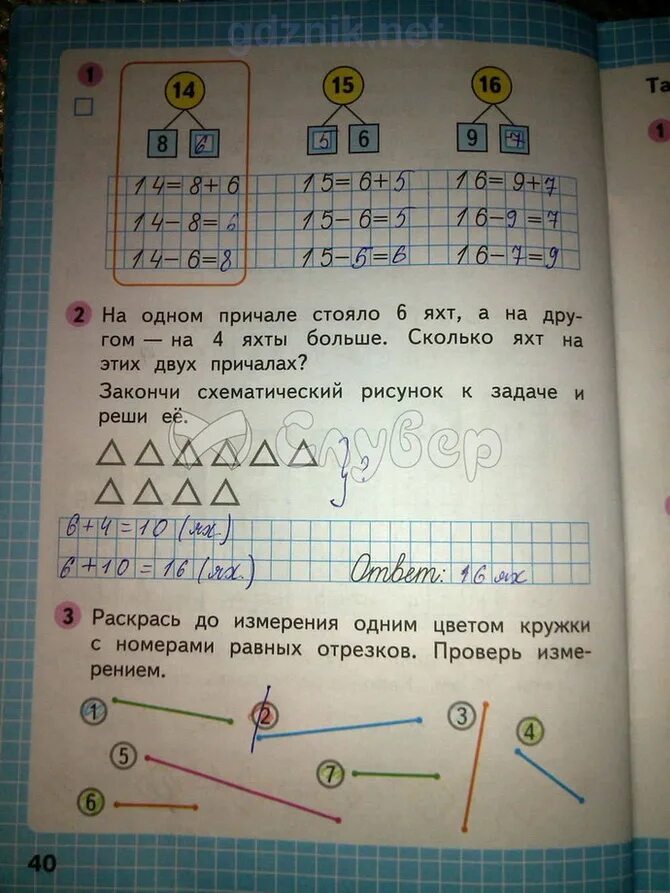 gdznik.net
1
14 15 16
8 6 5 6 9 7
14=8+6 15=6+5 16=9+7
14-8=6 15-6=5 16-9=7
14-6=8 15-5=6 16-7=9
2 На одном причале стояло 6 яхт, а на дру-
гом — на 4 яхты больше. Сколько яхт на
этих двух причалах?
Закончи схематический рисунок к задаче и
реши её.
Слувер
?
6+4=10 (ях.)
6+10=16 (ях.) Ответ: 16 ях
3 Раскрась до измерения одним цветом кружки
с номерами равных отрезков. Проверь изме-
рением.
1 2 3 4
5 7
6
40
Та
1